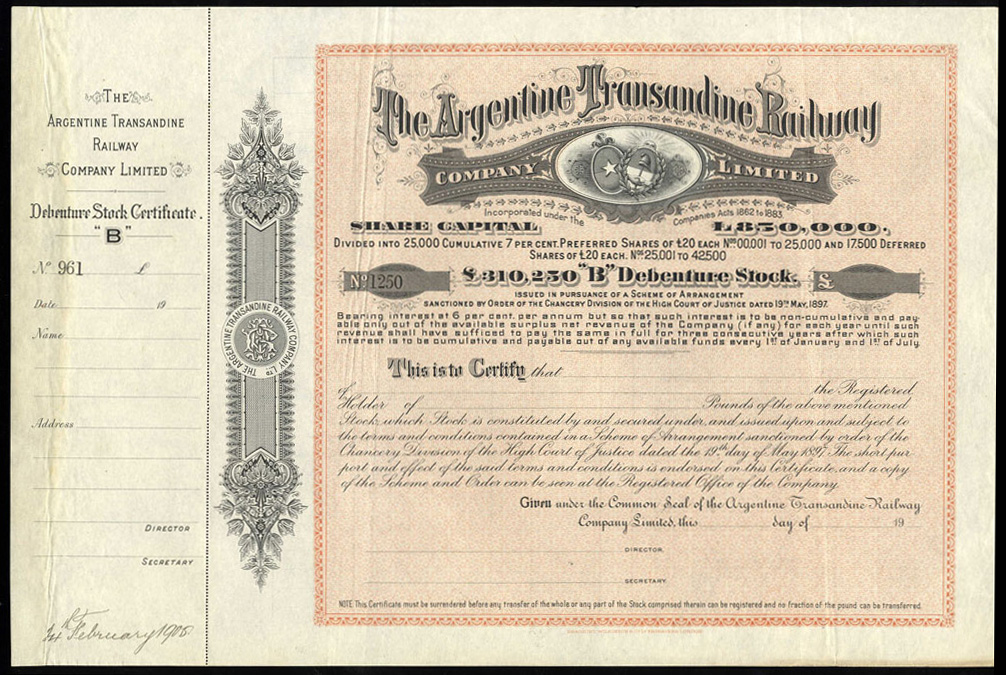 The
Argentine Transandine
Railway
Company Limited
Debenture Stock Certificate.
"B"
No 961 £
Date 19
Name
Address
Director
Secretary
February 1908.
THE ARGENTINE TRANSANDINE RAILWAY COMPANY LTD
The Argentine Transandine Railway
COMPANY LIMITED
Incorporated under the Companies Acts 1862 to 1883
SHARE CAPITAL £850,000.
Divided into 25,000 Cumulative 7 per cent. Preferred Shares of £20 each Nos 00,001 to 25,000 and 17,500 Deferred
Shares of £20 each. Nos 25,001 to 42,500
No 1250 £310,250 "B" Debenture Stock. £
ISSUED IN PURSUANCE OF A SCHEME OF ARRANGEMENT
SANCTIONED BY ORDER OF THE CHANCERY DIVISION OF THE HIGH COURT OF JUSTICE DATED 19TH MAY, 1897.
Bearing interest at 6 per cent. per annum but so that such interest is to be non-cumulative and pay-
able only out of the available surplus net revenue of the Company (if any) for each year until such
revenue shall have sufficed to pay the same in full for three consecutive years after which such
interest is to be cumulative and payable out of any available funds every 1st of January and 1st of July.
This is to Certify that
of the Registered
Holder of Pounds of the above mentioned
Stock, which Stock is constituted by and secured under, and issued upon and subject to
the terms and conditions contained in a Scheme of Arrangement sanctioned by order of the
Chancery Division of the High Court of Justice dated the 19th day of May 1897. The short pur
port and effect of the said terms and conditions is endorsed on this Certificate, and a copy
of the Scheme and Order can be seen at the Registered Office of the Company.
Given under the Common Seal of the Argentine Transandine Railway
Company Limited, this day of 19
DIRECTOR.
SECRETARY
NOTE This Certificate must be surrendered before any transfer of the whole or any part of the Stock comprised therein can be registered and no fraction of the pound can be transferred.